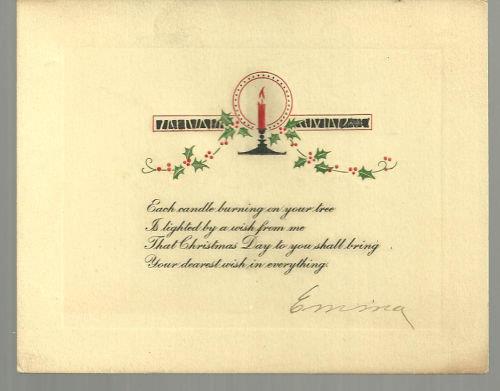 Each candle burning on your tree
Is lighted by a wish from me
That Christmas Day to you shall bring
Your dearest wish in everything.
Emma